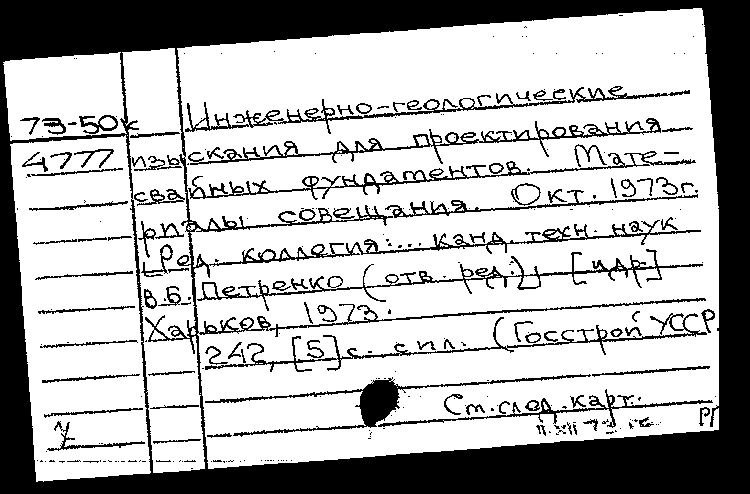 73-50к Инженерно-геологические
4777 изыскания для проектирования
свайных фундаментов. Мате-
риалы совещания. Окт. 1973г.
[Ред. коллегия:... канд. техн. наук
В.Б. Петренко (отв. ред.)] [и др.]
Харьков, 1973.
242, [5] с. с ил. (Госстрой УССР.
См. след. карт.